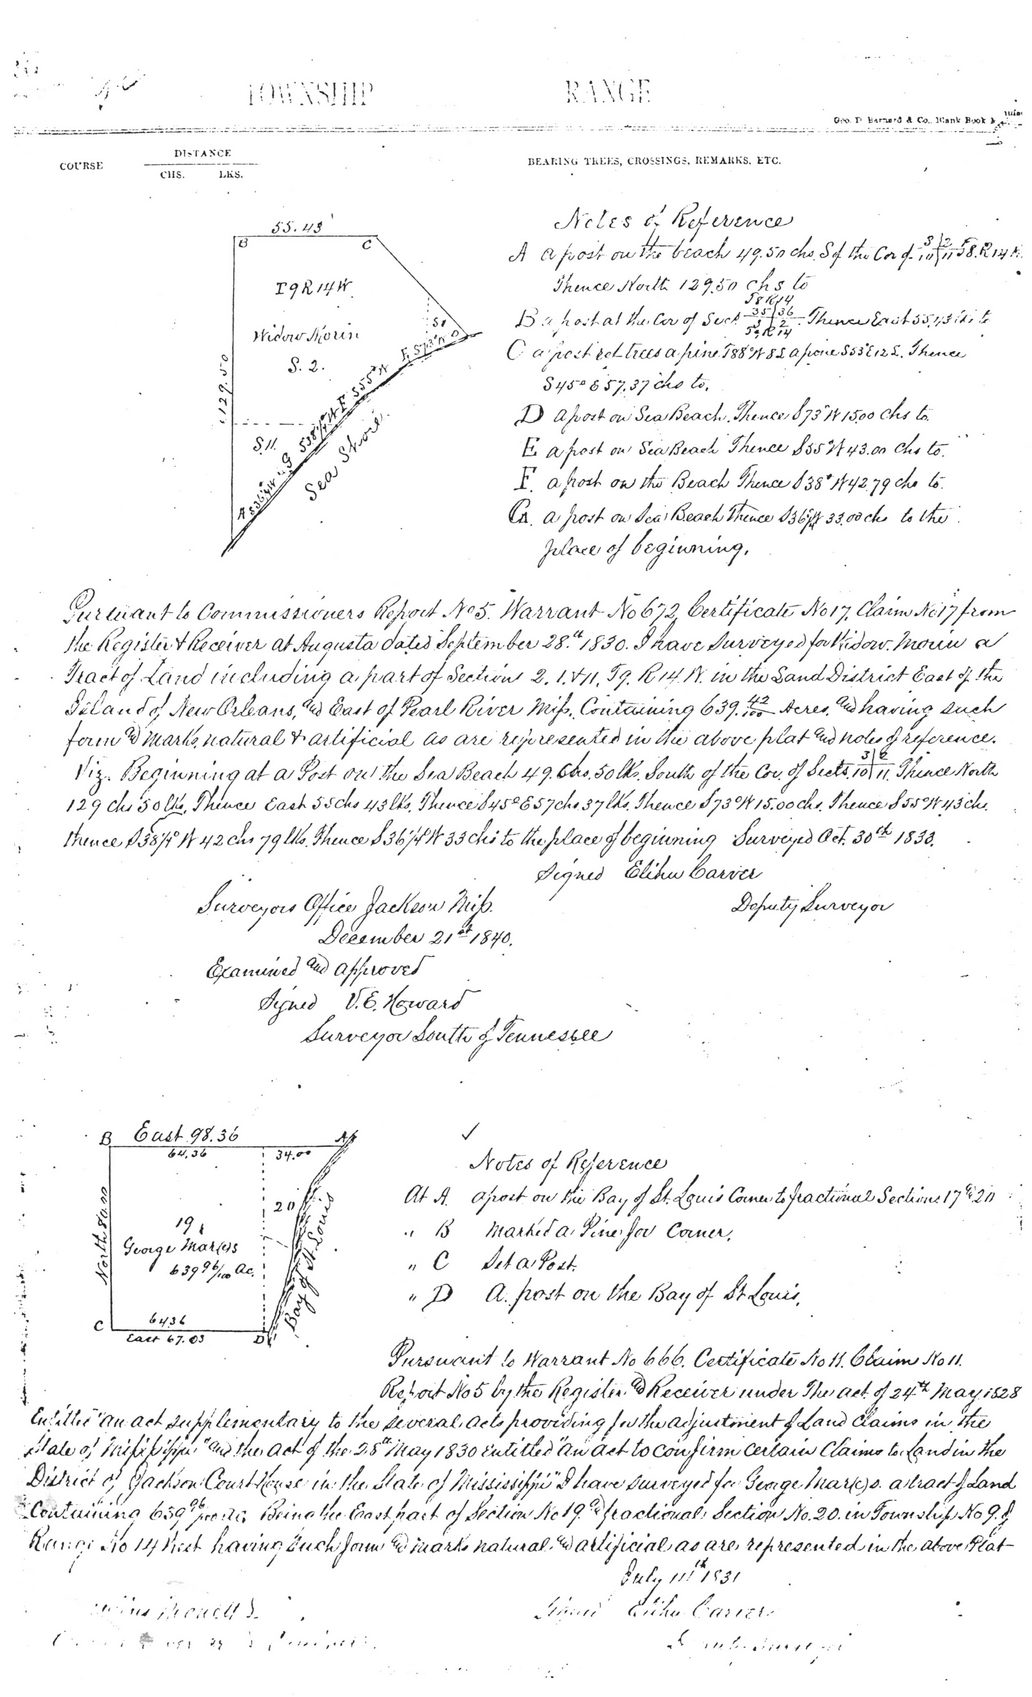 TOWNSHIP RANGE
Geo. D. Barnard & Co., Blank Book
COURSE DISTANCE BEARING TREES, CROSSINGS, REMARKS, ETC.
CHS. LKS.
55.43
B C
T 9 R 14 W.
Widow Morin
S. 2.
S1
D
129.50
E S 73° W
F S 55° W
S.11.
G S 38¼ W
A S 36¼ W
Sea Shore
Notes of Reference
A a post on the beach 49.50 chs. S of the Cor of 3|2 10|11 T 8. R 14 W.
Thence North 129.50 chs to
T8 R14
B a post at the Cor of Sect 35|36 3|2 Thence East 55.43 chs to
T9 R14
C a post red trees a pine S 88° W 8 L a pine S 53° E 12 L. Thence
S 45° E 57.37 chs to.
D a post on Sea Beach. Thence S 73° W 15.00 chs to.
E a post on Sea Beach Thence S 55° W 43.00 chs to.
F. a post on the Beach Thence S 38° W 42.79 chs to.
G. a post on Sea Beach Thence S 36¼ W 33.00 chs to the
place of beginning.
Pursuant to Commissioners Report No 5. Warrant No 672, Certificate No 17, Claim No 17 from
the Register & Receiver at Augusta dated September 28th 1830. I have surveyed for Widow Morin a
Tract of Land including a part of Sections 2. 1. & 11, T9. R 14 W. in the Land District East of the
Island of New Orleans, and East of Pearl River Miss. Containing 639. 42/100 Acres. and having such
form and marks, natural & artificial as are represented in the above plat and notes of reference.
Viz. Beginning at a Post on the Sea Beach 49. Chs. 50 lks. South of the Cor. of Sects. 3|2 10|11. Thence North
129 chs 50 lks, Thence East 55 chs 43 lks, Thence S 45° E 57 chs 37 lks, Thence S 73° W 15.00 chs, Thence S 55° W 43 chs.
thence S 38¼° W 42 chs 79 lks. Thence S 36¼° W 33 chs to the place of beginning Surveyed Oct. 30th 1830.
Signed Elihu Carver
Surveyors Office Jackson Miss. Deputy Surveyor
December 21st 1840.
Examined and approved
Signed V. E. Howard
Surveyor South of Tennessee
B East 98.36 A
64.36 34.00
20
North 80.00
19
George Mar(c)s
639 96/100 Ac.
Bay of St. Louis
64.36
C East 67.03 D
Notes of Reference
At A a post on the Bay of St. Louis Corner to fractional Sections 17 & 20
" B Marked a Pine for Corner.
" C Set a Post.
" D A. post on the Bay of St Louis.
Pursuant to Warrant No 666. Certificate No 11. Claim No 11.
Report No 5 by the Register and Receiver under the act of 24th May 1828
Entitled "an act supplementary to the several acts providing for the adjustment of Land claims in the
State of Mississippi" and the act of the 28th May 1830 entitled "an act to confirm certain Claims to Land in the
District of Jackson Court House in the State of Mississippi" I have surveyed for George Mar(c)s. a tract of Land
Containing 639 96/100 Ac. Being the East part of Section No 19. and fractional Section No. 20. in Township No 9. of
Range No 14 West having such form and marks natural and artificial as are represented in the above Plat
July 11th 1831
Signed Elihu Carver